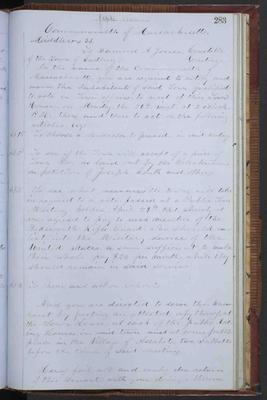 283
Commonwealth of Massachusetts
Middlesex SS.
To Samuel A. Jones Constable
of the Town of Sudbury Greeting
In the name of the Commonwealth of
Massachusetts you are required to notify and
warn the Inhabitants of said Town qualified
to vote in Town affairs to meet at the Town
House on Monday the
P.M. then and there to act on the following
articles viz
To choose a Moderator to preside in said meeting
To see if the Town will accept of a
Town Way as laid out by the Selectmen
on petition of Joseph and others
To see what measures the Town will take
in regard to a vote passed at a Public Town
Meeting
agreed to pay to each member of the
Wadsworth Rifle Guard who should be
into the Military service of the
United States a sum sufficient to make
their whole pay $20 per month while they
should remain in said service
To hear and act on
And you are directed to serve this Warrant
by posting an attested copy thereof at
the Town House and each of the public
houses in said town and at some public
place in the Village of Assabet, two Sabbaths
before the time of said meeting
Hereof fail not and make due return
of this Warrant with your doings thereon